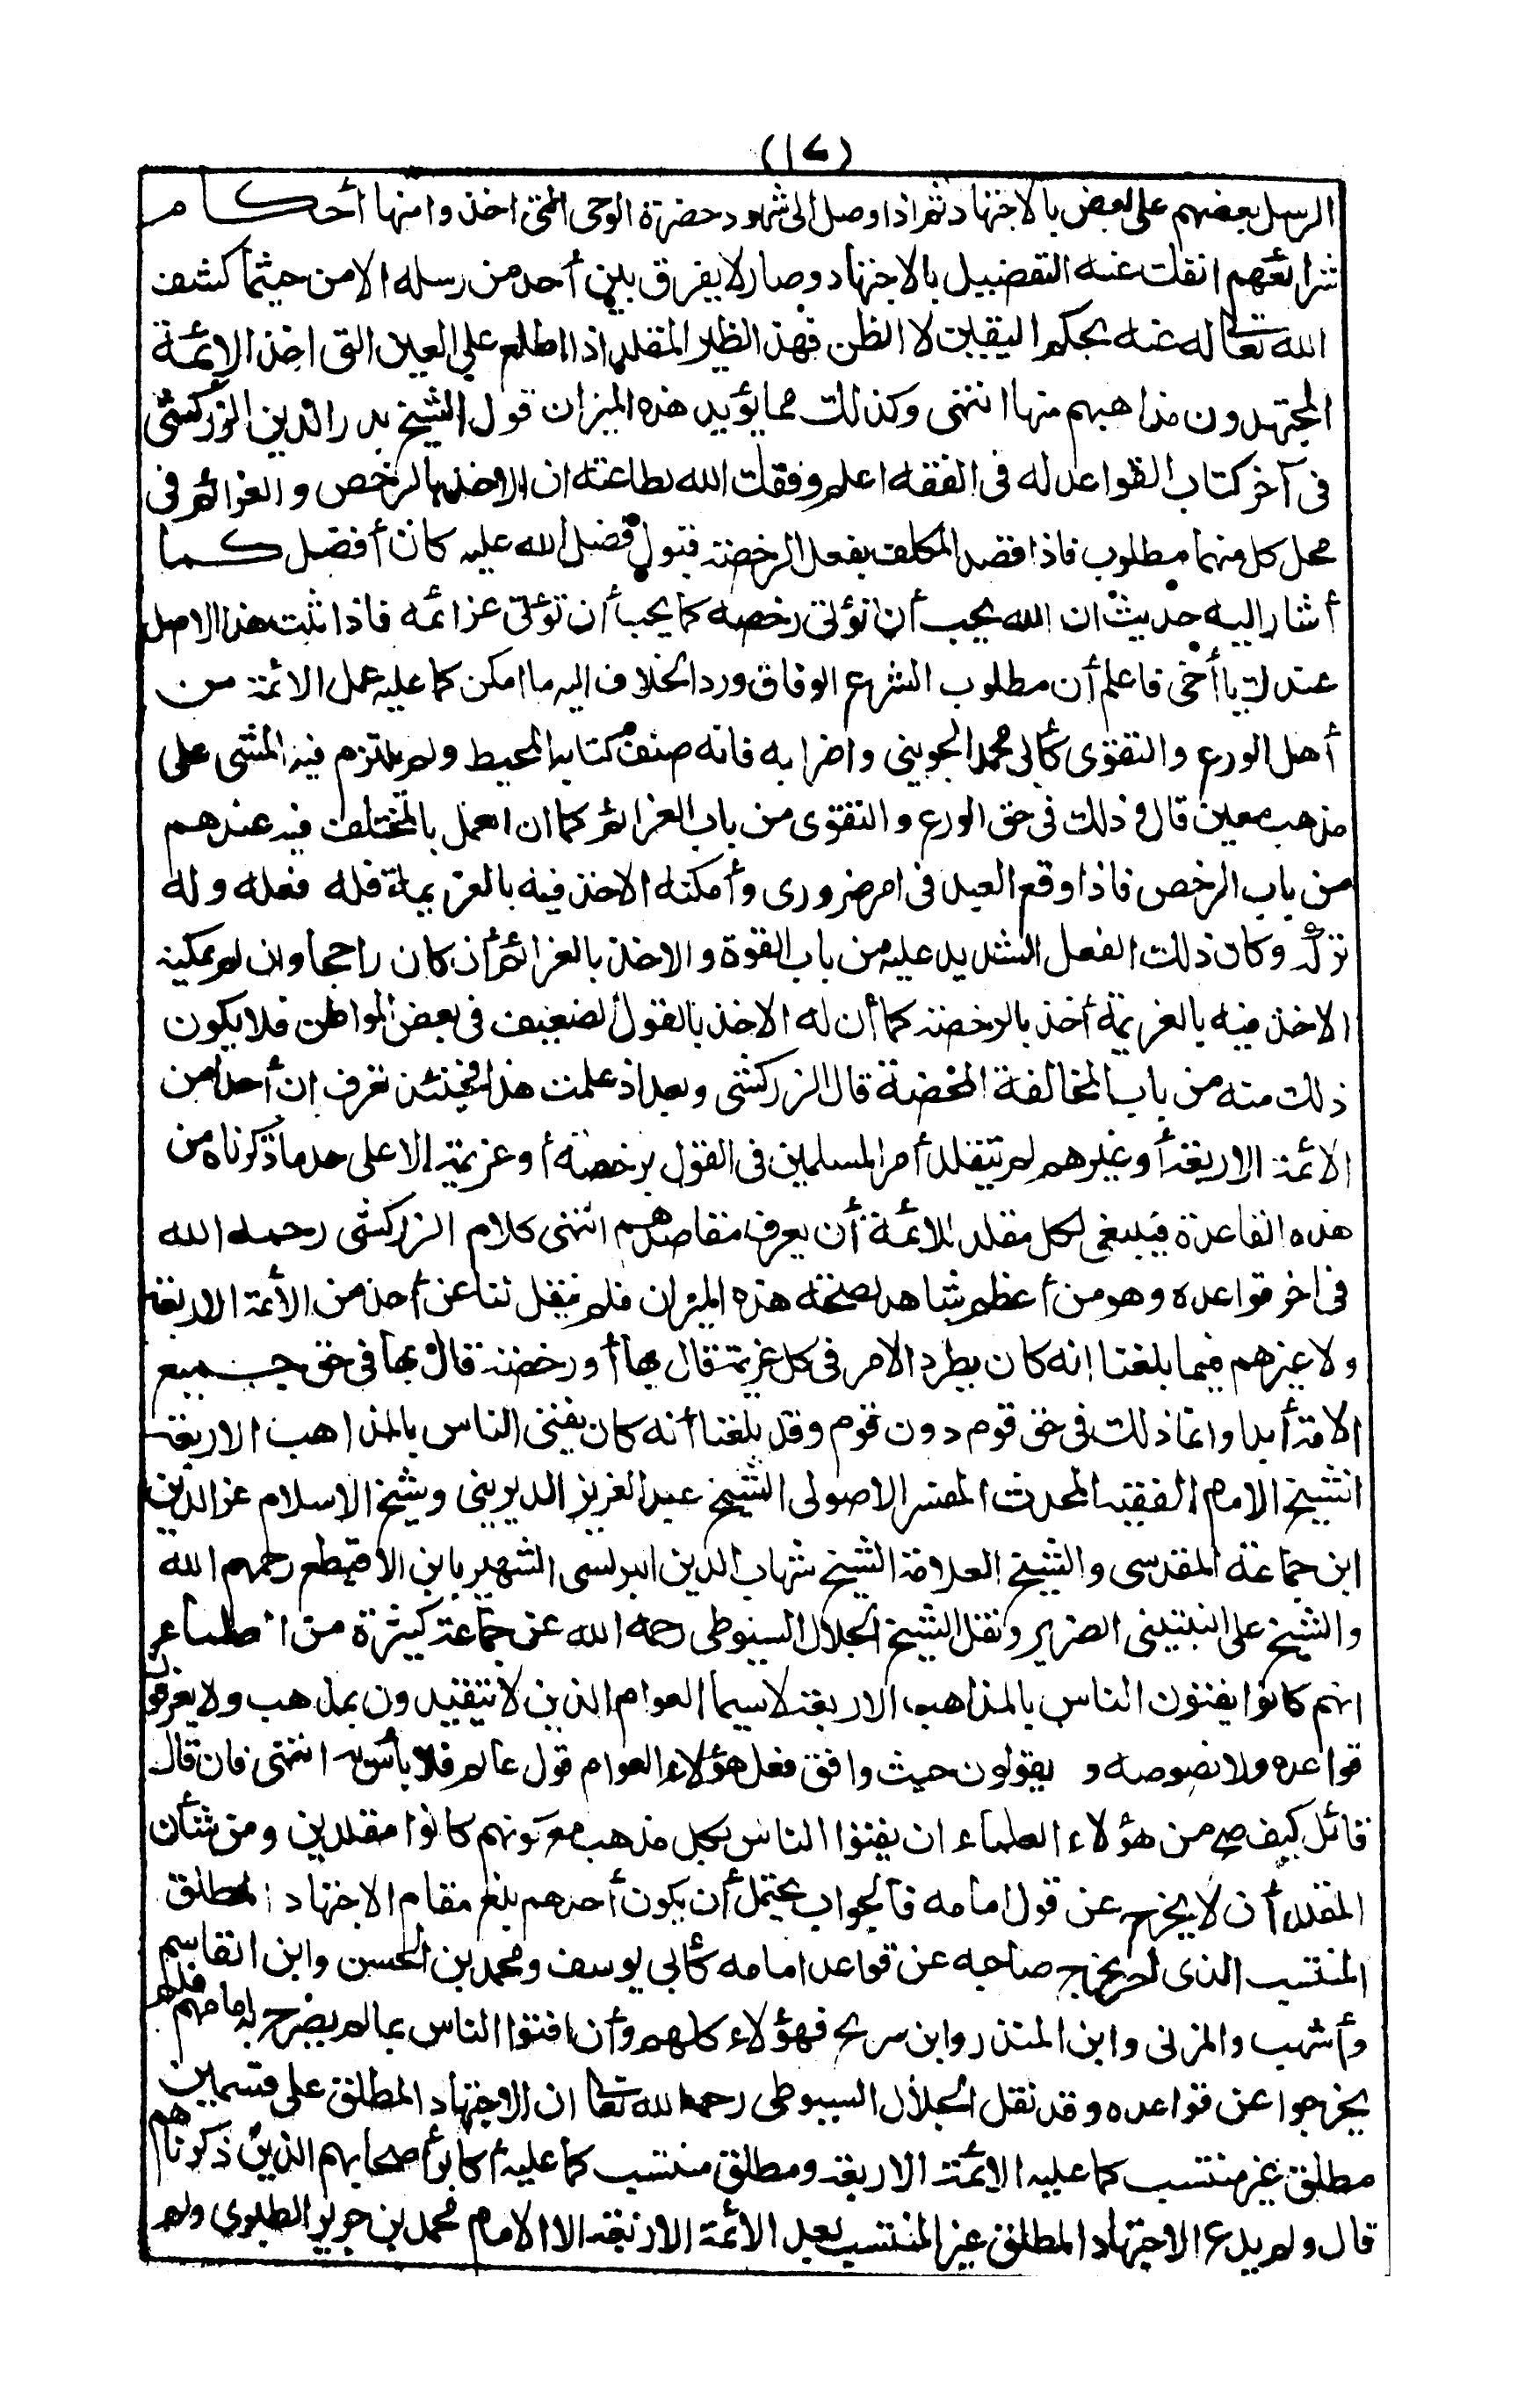 (١٧)
الرسل بعضهم على بعض بالاجتهاد ثم اذا وصل الى شهود حضرة الوحى التى اخذوا منها أحكام
شرائعهم انفلت عنه التفضيل بالاجتهاد وصار لا يفرق بين أحد من رسله الا من حيثما كشف
الله تعالى له عنه بحكم اليقين لا الظن فهذا نظير المقلد اذا اطلع على العين التى اخذ الائمة
المجتهدون مذاهبهم منها انتهى وكذلك مما يؤيد هذه الميزان قول الشيخ بدر الدين الزركشى
فى آخر كتاب القواعد له فى الفقه اعلم وفقك الله بطاعته ان الاخذ بالرخص والعزائم فى
محل كل منهما مطلوب فاذا قصد المكلف بفعل الرخصة قبول فضل الله عليه كان أفضل كما
أشار اليه حديث ان الله يحب أن تؤتى رخصه كما يحب أن تؤتى عزائمه فاذا ثبت هذا الاصل
عندك يا أخى فاعلم أن مطلوب الشرع الوفاق ورد الخلاف اليه ما امكن كما عليه عمل الائمة من
أهل الورع والتقوى كأبى محمد الجوينى واضرابه فانه صنف كتابه المحيط ولم يلتزم فيه المشى على
مذهب معين قال وذلك فى حق الورع والتقوى من باب العزائم كما ان العمل بالمختلف فيه عندهم
من باب الرخص فاذا وقع العبد فى امر ضرورى وأمكنه الاخذ فيه بالعزيمة فله فعله وله
تركه وكان ذلك الفعل الشديد عليه من باب القوة والاخذ بالعزائم أن كان راجحا وان لم يمكنه
الاخذ فيه بالعزيمة أخذ بالرخصة كما أن له الاخذ بالقول الضعيف فى بعض المواطن فلا يكون
ذلك منه من باب المخالفة المحضة قال الزركشى وبعد اذ علمت هذا فحينئذ تعرف ان أحدا من
الائمة الاربعة أو غيرهم لم يتقلد أمر المسلمين فى القول برخصة أو عزيمة الا على حد ما ذكرناه من
هذه القاعدة فينبغى لكل مقلد للائمة أن يعرف مقاصدهم انتهى كلام الزركشى رحمه الله
فى اخر قواعده وهو من أعظم شاهد لصحة هذه الميزان فلم ينقل لنا عن أحد من الأئمة الاربعة
ولا غيرهم فيما بلغنا انه كان يطرد الامر فى كل عزيمة قال بها أو رخصة قال بها فى حق جميع
الامة أبدا وانما ذلك فى حق قوم دون قوم وقد بلغنا أنه كان يفتى الناس بالمذاهب الاربعة
الشيخ الامام الفقيه المحدث المفسر الاصولى الشيخ عبد العزيز الديرينى وشيخ الاسلام عز الدين
ابن جماعة المقدسى والشيخ العلامة الشيخ شهاب الدين البرلسى الشهير بابن الاقيطع رحمهم الله
والشيخ على النبتيتى الضرير ونقل الشيخ الجلال السيوطى رحمه الله عن جماعة كثيرة من العلماء
انهم كانوا يفتون الناس بالمذاهب الاربعة لاسيما العوام الذين لا يتقيدون بمذهب ولا يعرفون
قواعده ولا نصوصه و يقولون حيث وافق فعل هؤلاء العوام قول عالم فلا بأس به انتهى فان قال
قائل كيف صح من هؤلاء العلماء ان يفتوا الناس بكل مذهب مع كونهم كانوا مقلدين ومن شأن
المقلد أن لا يخرج عن قول امامه فالجواب يحتمل أن يكون أحدهم بلغ مقام الاجتهاد المطلق
المنتسب الذى لم يخرج صاحبه عن قواعد امامه كأبى يوسف ومحمد بن الحسن وابن القاسم
وأشهب والمزنى وابن المنذر وابن سريج فهؤلاء كلهم وأن افتوا الناس بما لم يصرح به امامهم فلم
يخرجوا عن قواعده وقد نقل الجلال السيوطى رحمه الله تعالى ان الاجتهاد المطلق على قسمين
مطلق غير منتسب كما عليه الائمة الاربعة ومطلق منتسب كما عليه أكابر أصحابهم الذين ذكرناهم
قال ولم يدع الاجتهاد المطلق غير المنتسب بعد الأئمة الاربعة الا الامام محمد بن جرير الطبرى ولم